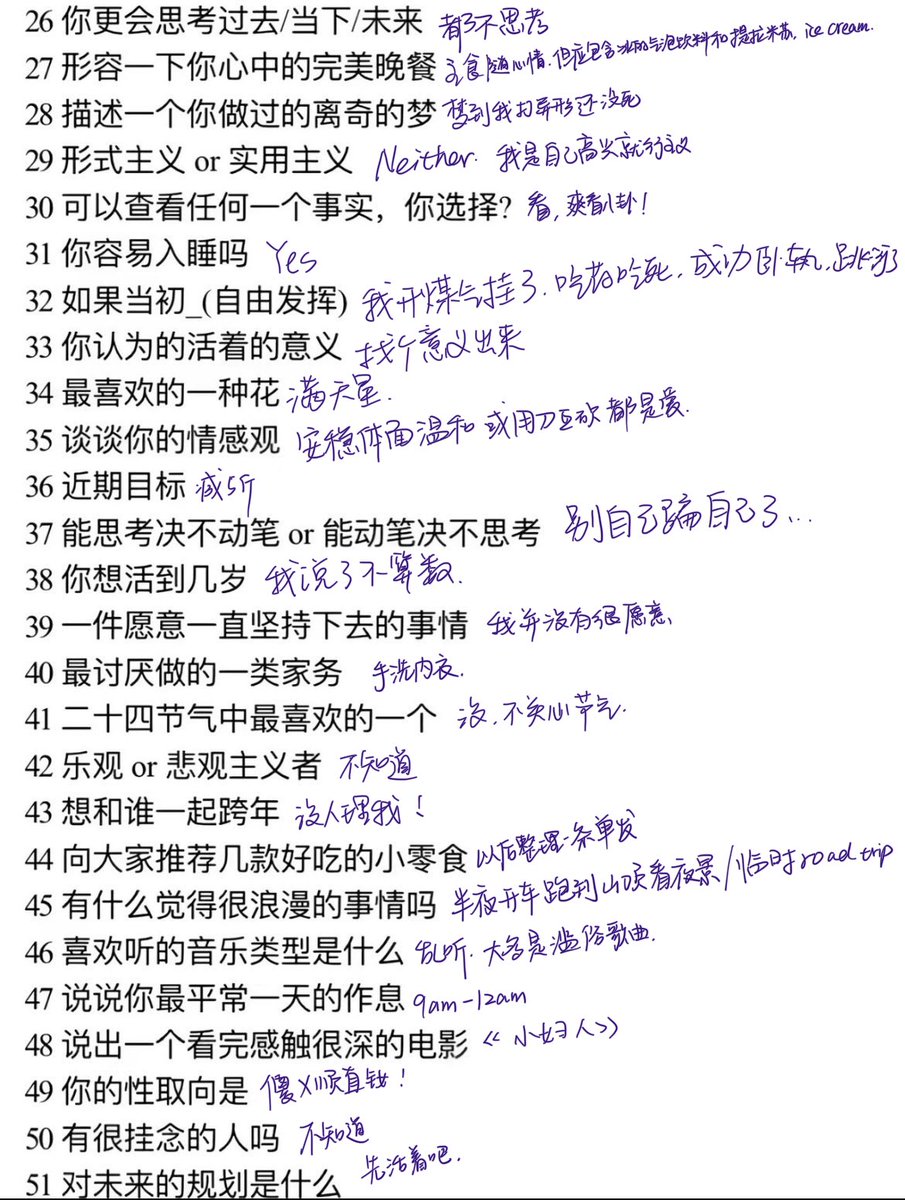 26 你更会思考过去/当下/未来 都不思考
27 形容一下你心中的完美晚餐 主食随心情.但应包含冰的气泡饮料和提拉米苏, ice cream.
28 描述一个你做过的离奇的梦 梦到我打异形还没死
29 形式主义 or 实用主义 Neither. 我是自己高兴就行主义
30 可以查看任何一个事实，你选择? 看,爽看八卦!
31 你容易入睡吗 Yes
32 如果当初_(自由发挥) 我开煤气挂了.吃药吃死.成功卧轨.跳河了
33 你认为的活着的意义 找个意义出来
34 最喜欢的一种花 满天星.
35 谈谈你的情感观 安稳体面温和 或用刀互砍都是爱.
36 近期目标 减5斤
37 能思考决不动笔 or 能动笔决不思考 别自己骗自己了...
38 你想活到几岁 我说了不算数.
39 一件愿意一直坚持下去的事情 我并没有很愿意
40 最讨厌做的一类家务 手洗内衣.
41 二十四节气中最喜欢的一个 没.不关心节气.
42 乐观 or 悲观主义者 不知道
43 想和谁一起跨年 没人理我!
44 向大家推荐几款好吃的小零食 以后整理一条单发
45 有什么觉得很浪漫的事情吗 半夜开车跑到山顶看夜景/临时road trip
46 喜欢听的音乐类型是什么 乱听.大多是滥俗歌曲.
47 说说你最平常一天的作息 9am-12am
48 说出一个看完感触很深的电影 《小妇人》
49 你的性取向是 傻X顺直女!
50 有很挂念的人吗 不知道
51 对未来的规划是什么 先活着吧.